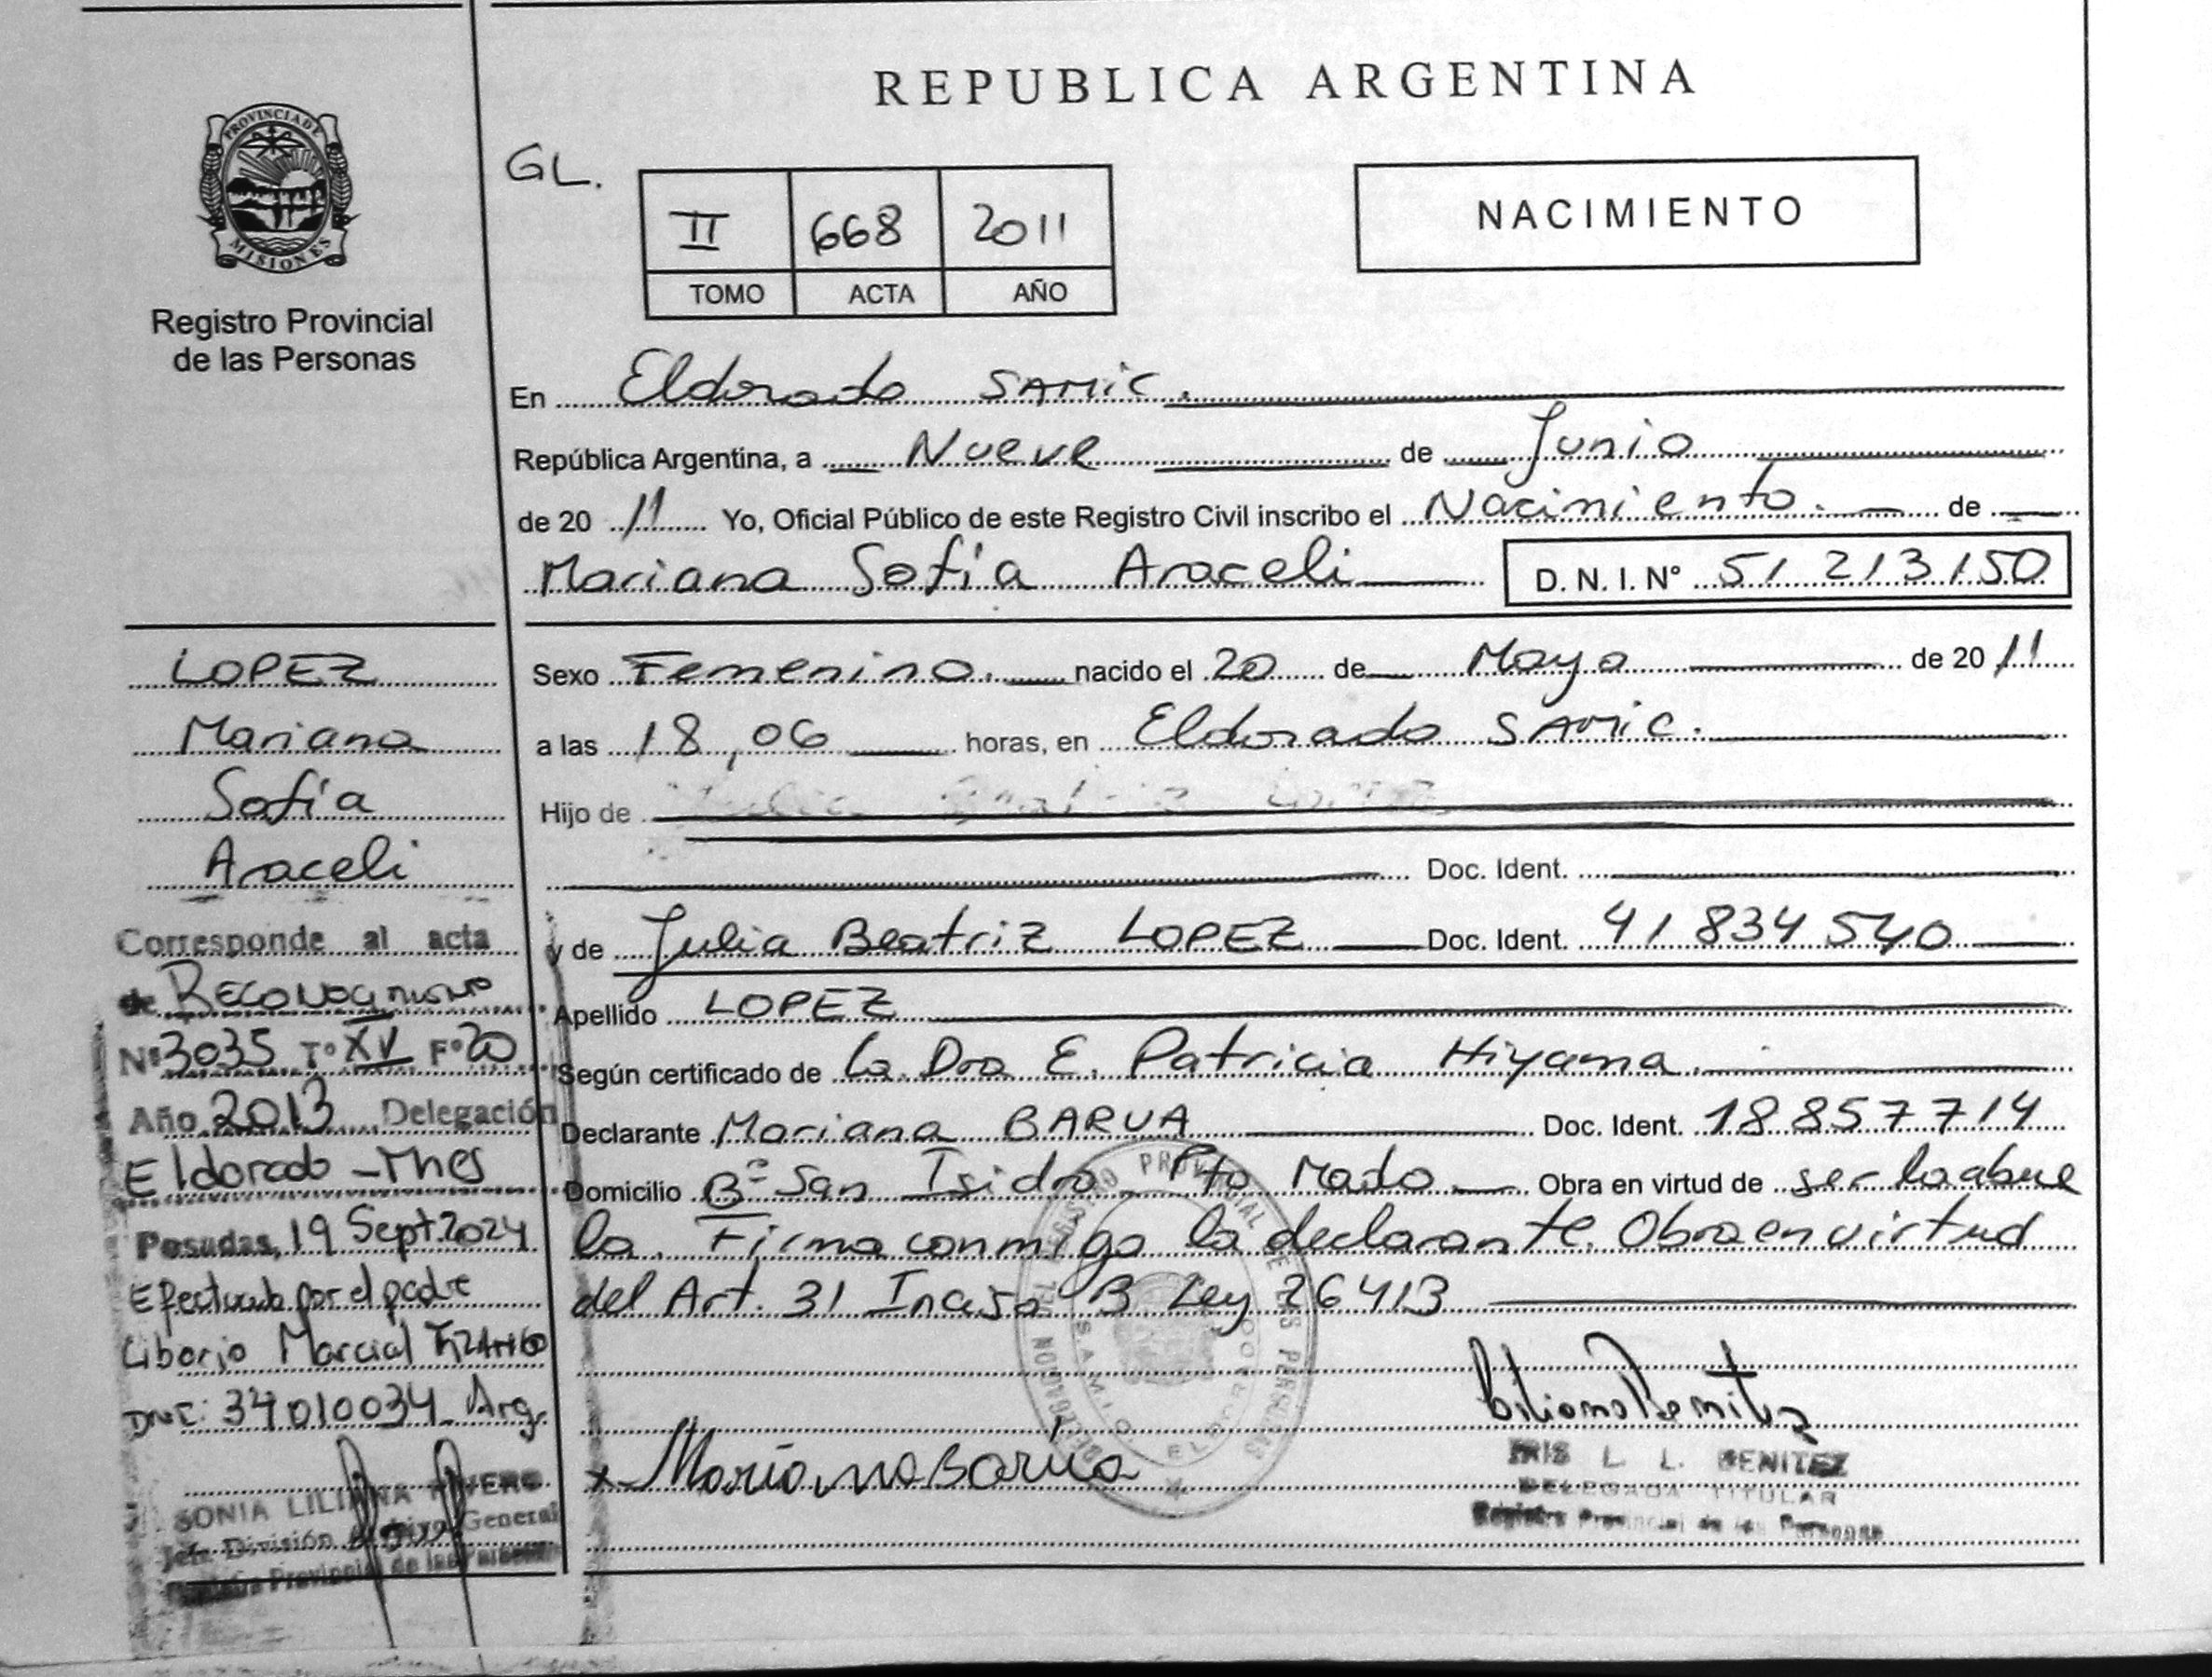 REPUBLICA ARGENTINA
PROVINCIA DE
MISIONES
Registro Provincial
de las Personas
GL.
II 668 2011
TOMO ACTA AÑO
NACIMIENTO
En Eldorado SAMIC.
República Argentina, a Nueve de Junio
de 20 11 Yo, Oficial Público de este Registro Civil inscribo el Nacimiento. de
Mariana Sofía Araceli D. N. I. Nº 51 213 150
LOPEZ
Mariana
Sofía
Araceli
Corresponde al acta
de Reconocimiento
Nº 3035 Tº XV Fº 20
Año 2013 Delegación
Eldorado - Mnes
Posadas, 19 Sept 2024
Efectuado por el padre
Liborio Marcial
DNI: 34010034 Arg.
SONIA LILIANA RIVERO
Jefa División Archivo General
Registro Provincial de las Personas
Sexo Femenino. nacido el 20 de Mayo de 20 11
a las 18,06 horas, en Eldorado SAMIC.
Hijo de
Doc. Ident.
y de Julia Beatriz LOPEZ Doc. Ident. 41 834 540
Apellido LOPEZ
Según certificado de la Dra E. Patricia Hiyama.
Declarante Mariana BARUA Doc. Ident. 18857714
Domicilio Bº San Isidro Pto Mado Obra en virtud de ser la abue
la. Firma conmigo la declarante. Obra en virtud
del Art. 31 Inciso B Ley 26413
x Mariana Barua
IRIS L. L. BENITEZ
DELEGADA TITULAR
Registro Provincial de las Personas